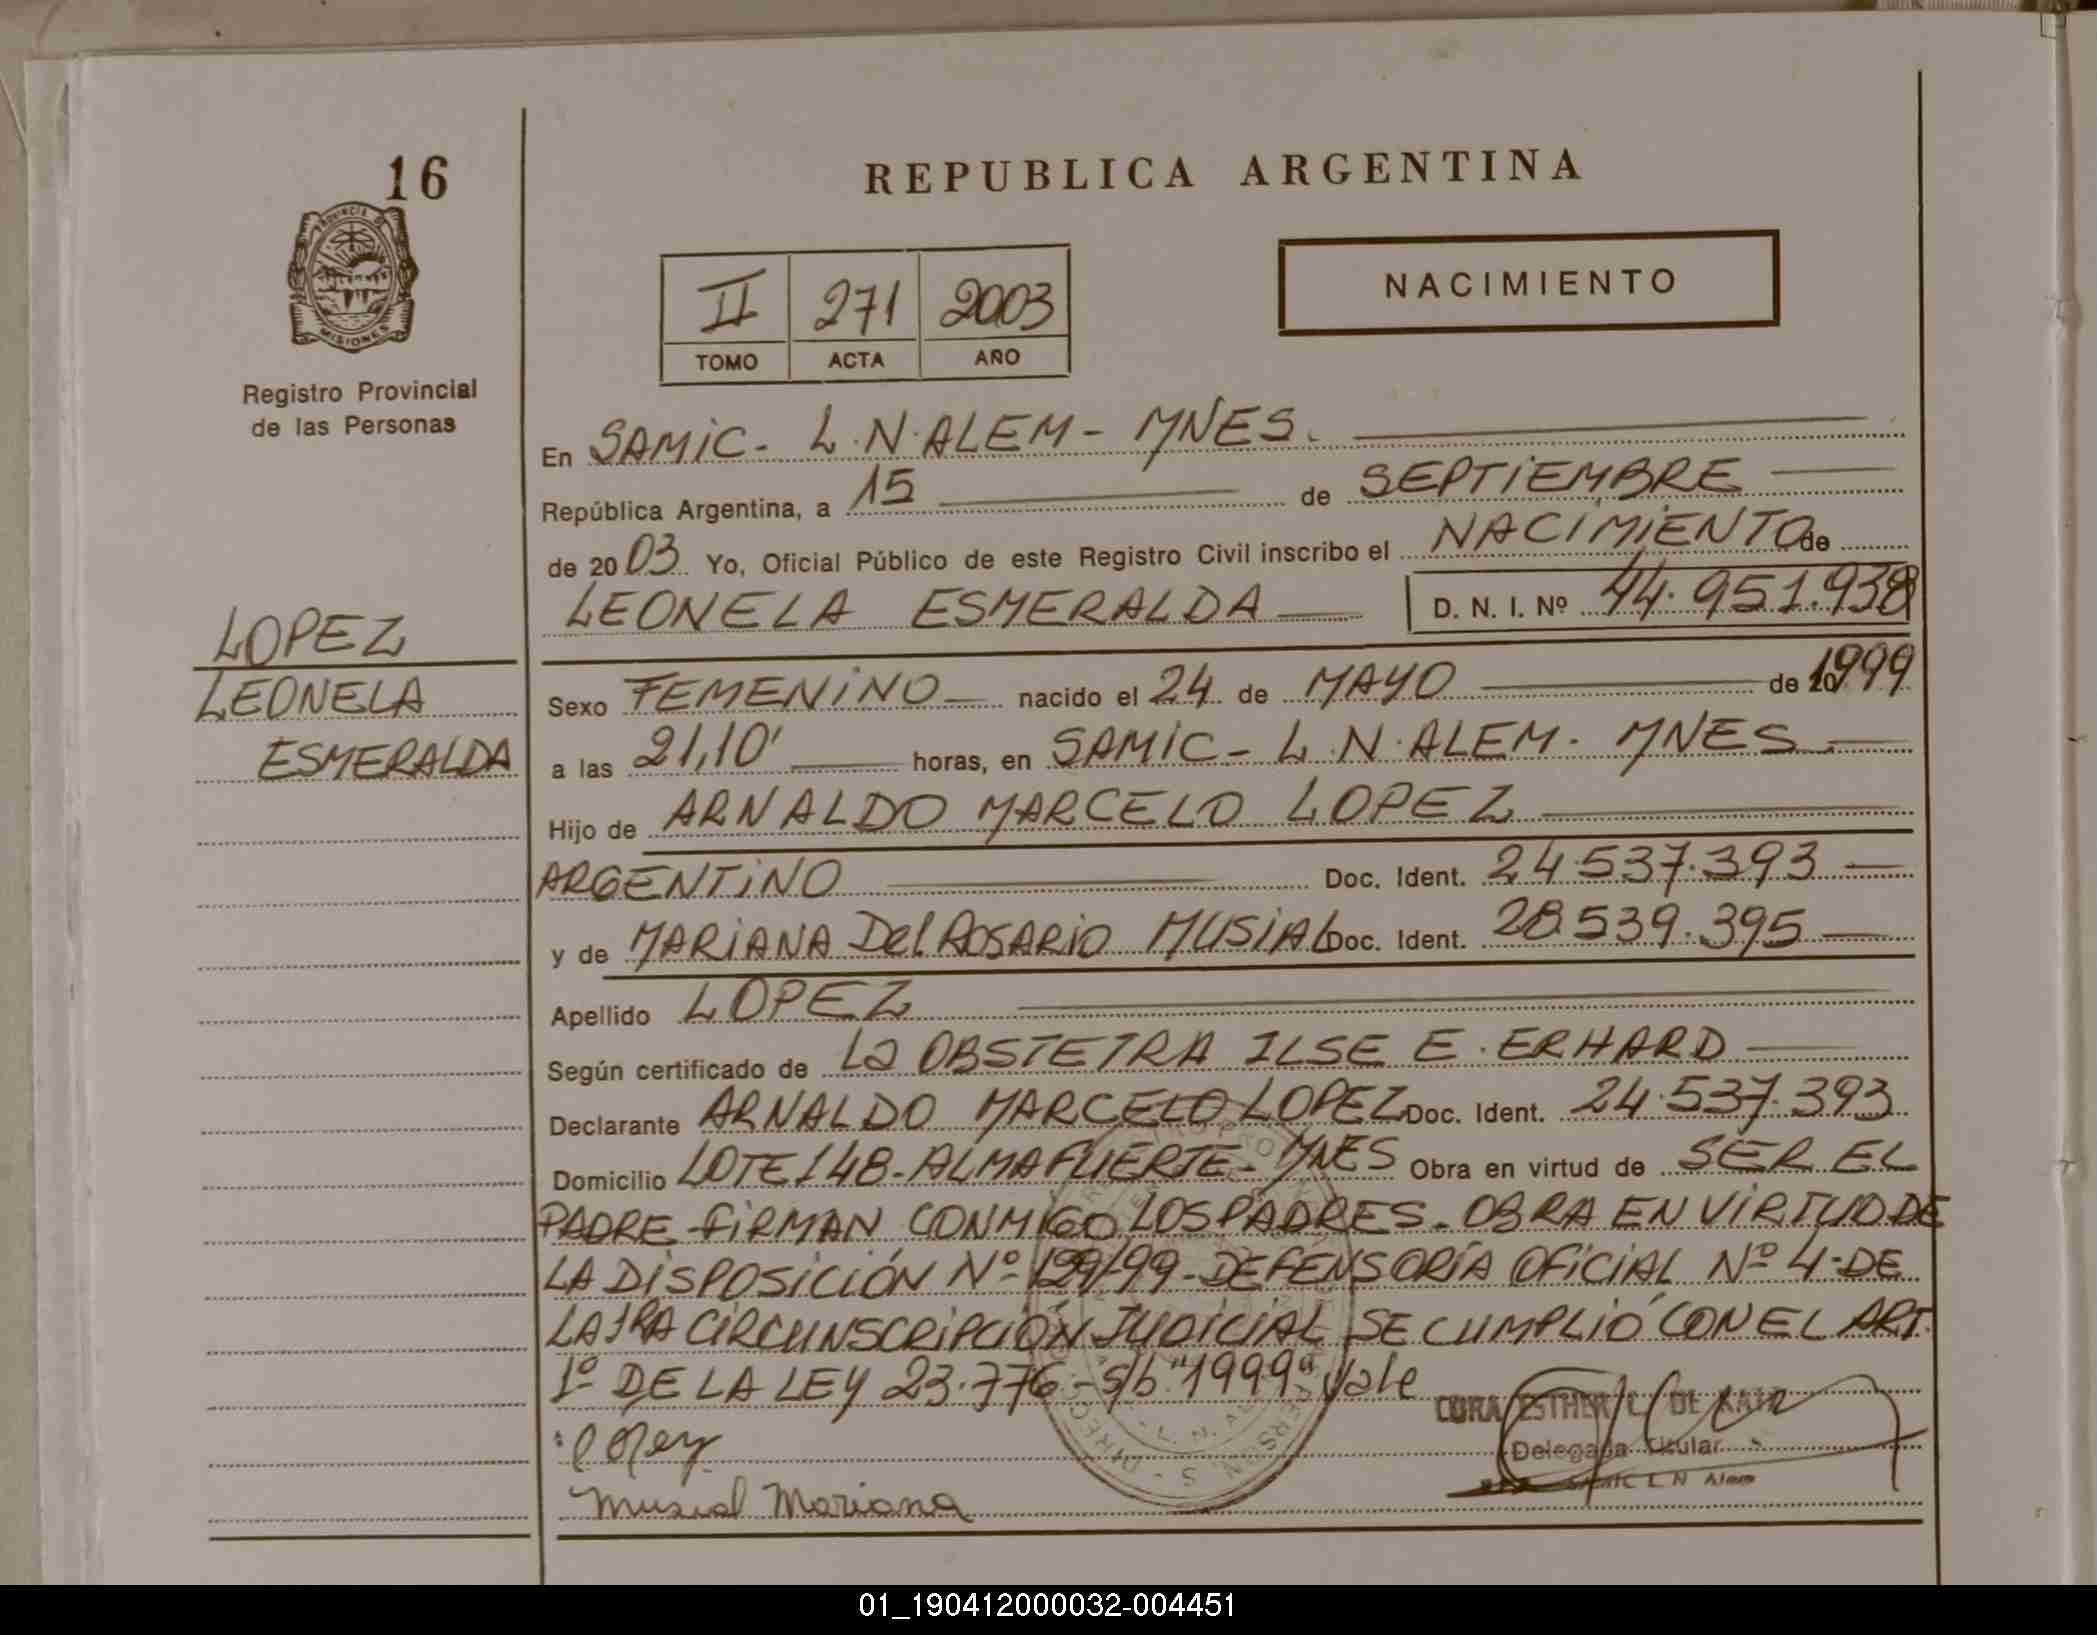 16
REPUBLICA ARGENTINA
PROVINCIA DE
MISIONES
Registro Provincial
de las Personas
II 271 2003
TOMO ACTA AÑO
NACIMIENTO
En SAMIC - L.N.ALEM - MNES.
República Argentina, a 15 de SEPTIEMBRE
de 2003 Yo, Oficial Público de este Registro Civil inscribo el NACIMIENTO de
LEONELA ESMERALDA D. N. I. Nº 44.951.938
LOPEZ
LEONELA
ESMERALDA
Sexo FEMENINO nacido el 24 de MAYO de 1999
a las 21,10' horas, en SAMIC - L.N.ALEM. MNES.
Hijo de ARNALDO MARCELO LOPEZ
ARGENTINO Doc. Ident. 24.537.393
y de MARIANA Del ROSARIO MUSIAL Doc. Ident. 28.539.395
Apellido LOPEZ
Según certificado de La OBSTETRA ILSE E. ERHARD
Declarante ARNALDO MARCELO LOPEZ Doc. Ident. 24.537.393
Domicilio LOTE 148-ALMAFUERTE-MNES Obra en virtud de SER EL
PADRE-FIRMAN CONMIGO LOS PADRES-OBRA EN VIRTUD DE
LA DISPOSICIÓN Nº 199-DEFENSORÍA OFICIAL Nº 4-DE
LA 1RA CIRCUNSCRIPCIÓN JUDICIAL SE CUMPLIÓ CON EL ART.
1º DE LA LEY 23.776-S/b "1999" Vale
CORA ESTHER L. DE
Delegada Titular
L N Alem
Lopez
Musial Mariana
01_190412000032-004451